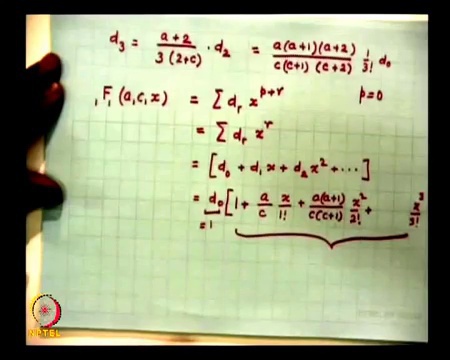 d₃ = (a+2)/(3(2+c)) · d₂ = (a(a+1)(a+2))/(c(c+1)(c+2)) 1/3! d₀
₁F₁(a,c,x) = Σ dᵣ x^(p+r) p=0
= Σ dᵣ x^r
= [d₀ + d₁x + d₂x² + ⋯]
= d₀[1 + a/c x/1! + (a(a+1))/(c(c+1)) x²/2! + x³/3!
=1
NPTEL